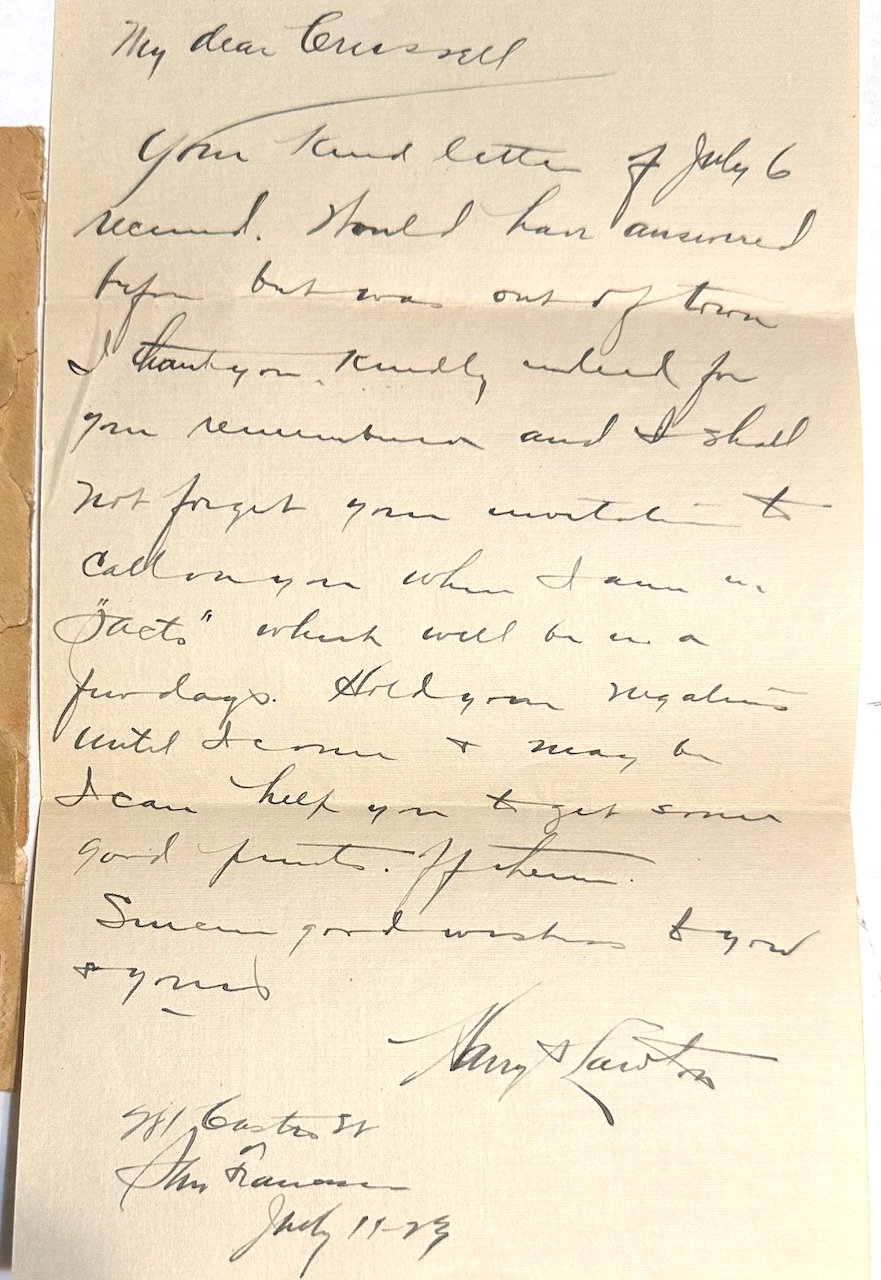 My dear Crissell
Your kind letter of July 6
received. Would have answered
before but was out of town
I thank you kindly indeed for
your remembrance and I shall
not forget your invitation to
call on you when I am in
"Sacto" which will be in a
few days. Hold your negatives
until I come & may be
I can help you to get some
good prints. Of them.
Sincere good wishes to you
& yours
Harry Lawton
981 Castro St
San Francisco
July 11-23